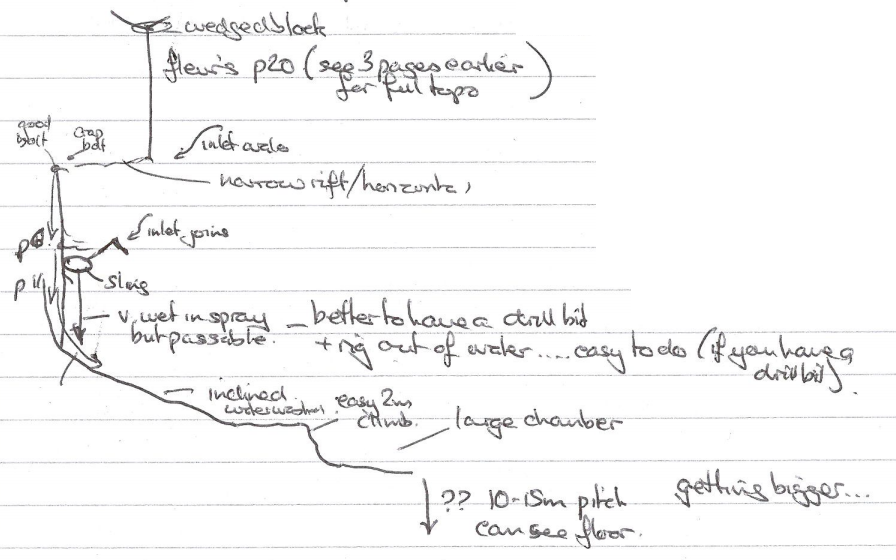 wedged block
fleur's p20 (see 3 pages earlier
for full topo)
good
bolt
crap
bolt
inlet
narrow rift/horizontal
inlet joins
p
p
sling
v. wet in spray
but passable.
better to have a drill bit
+ rig out of water.... easy to do (if you have a
drill bit).
inclined
waterwashed
easy 2m
climb.
large chamber
?? 10-15m pitch
can see floor.
getting bigger...